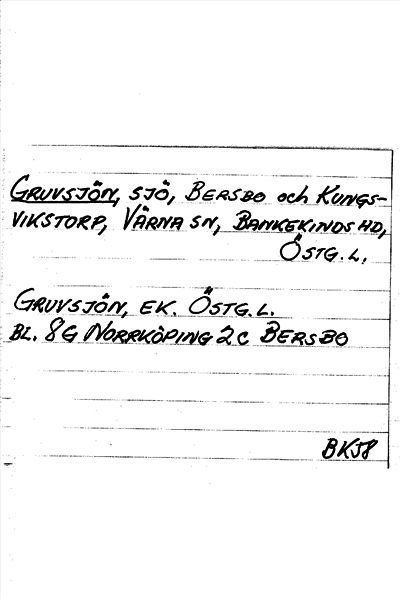 GRUVSJÖN, SJÖ, BERSBO och KUNGS-
VIKSTORP, VÄRNA SN, BANKEKINDS HD,
ÖSTG. L.
GRUVSJÖN, EK. ÖSTG. L.
BL. 8G NORRKÖPING 2C BERSBO
BK58